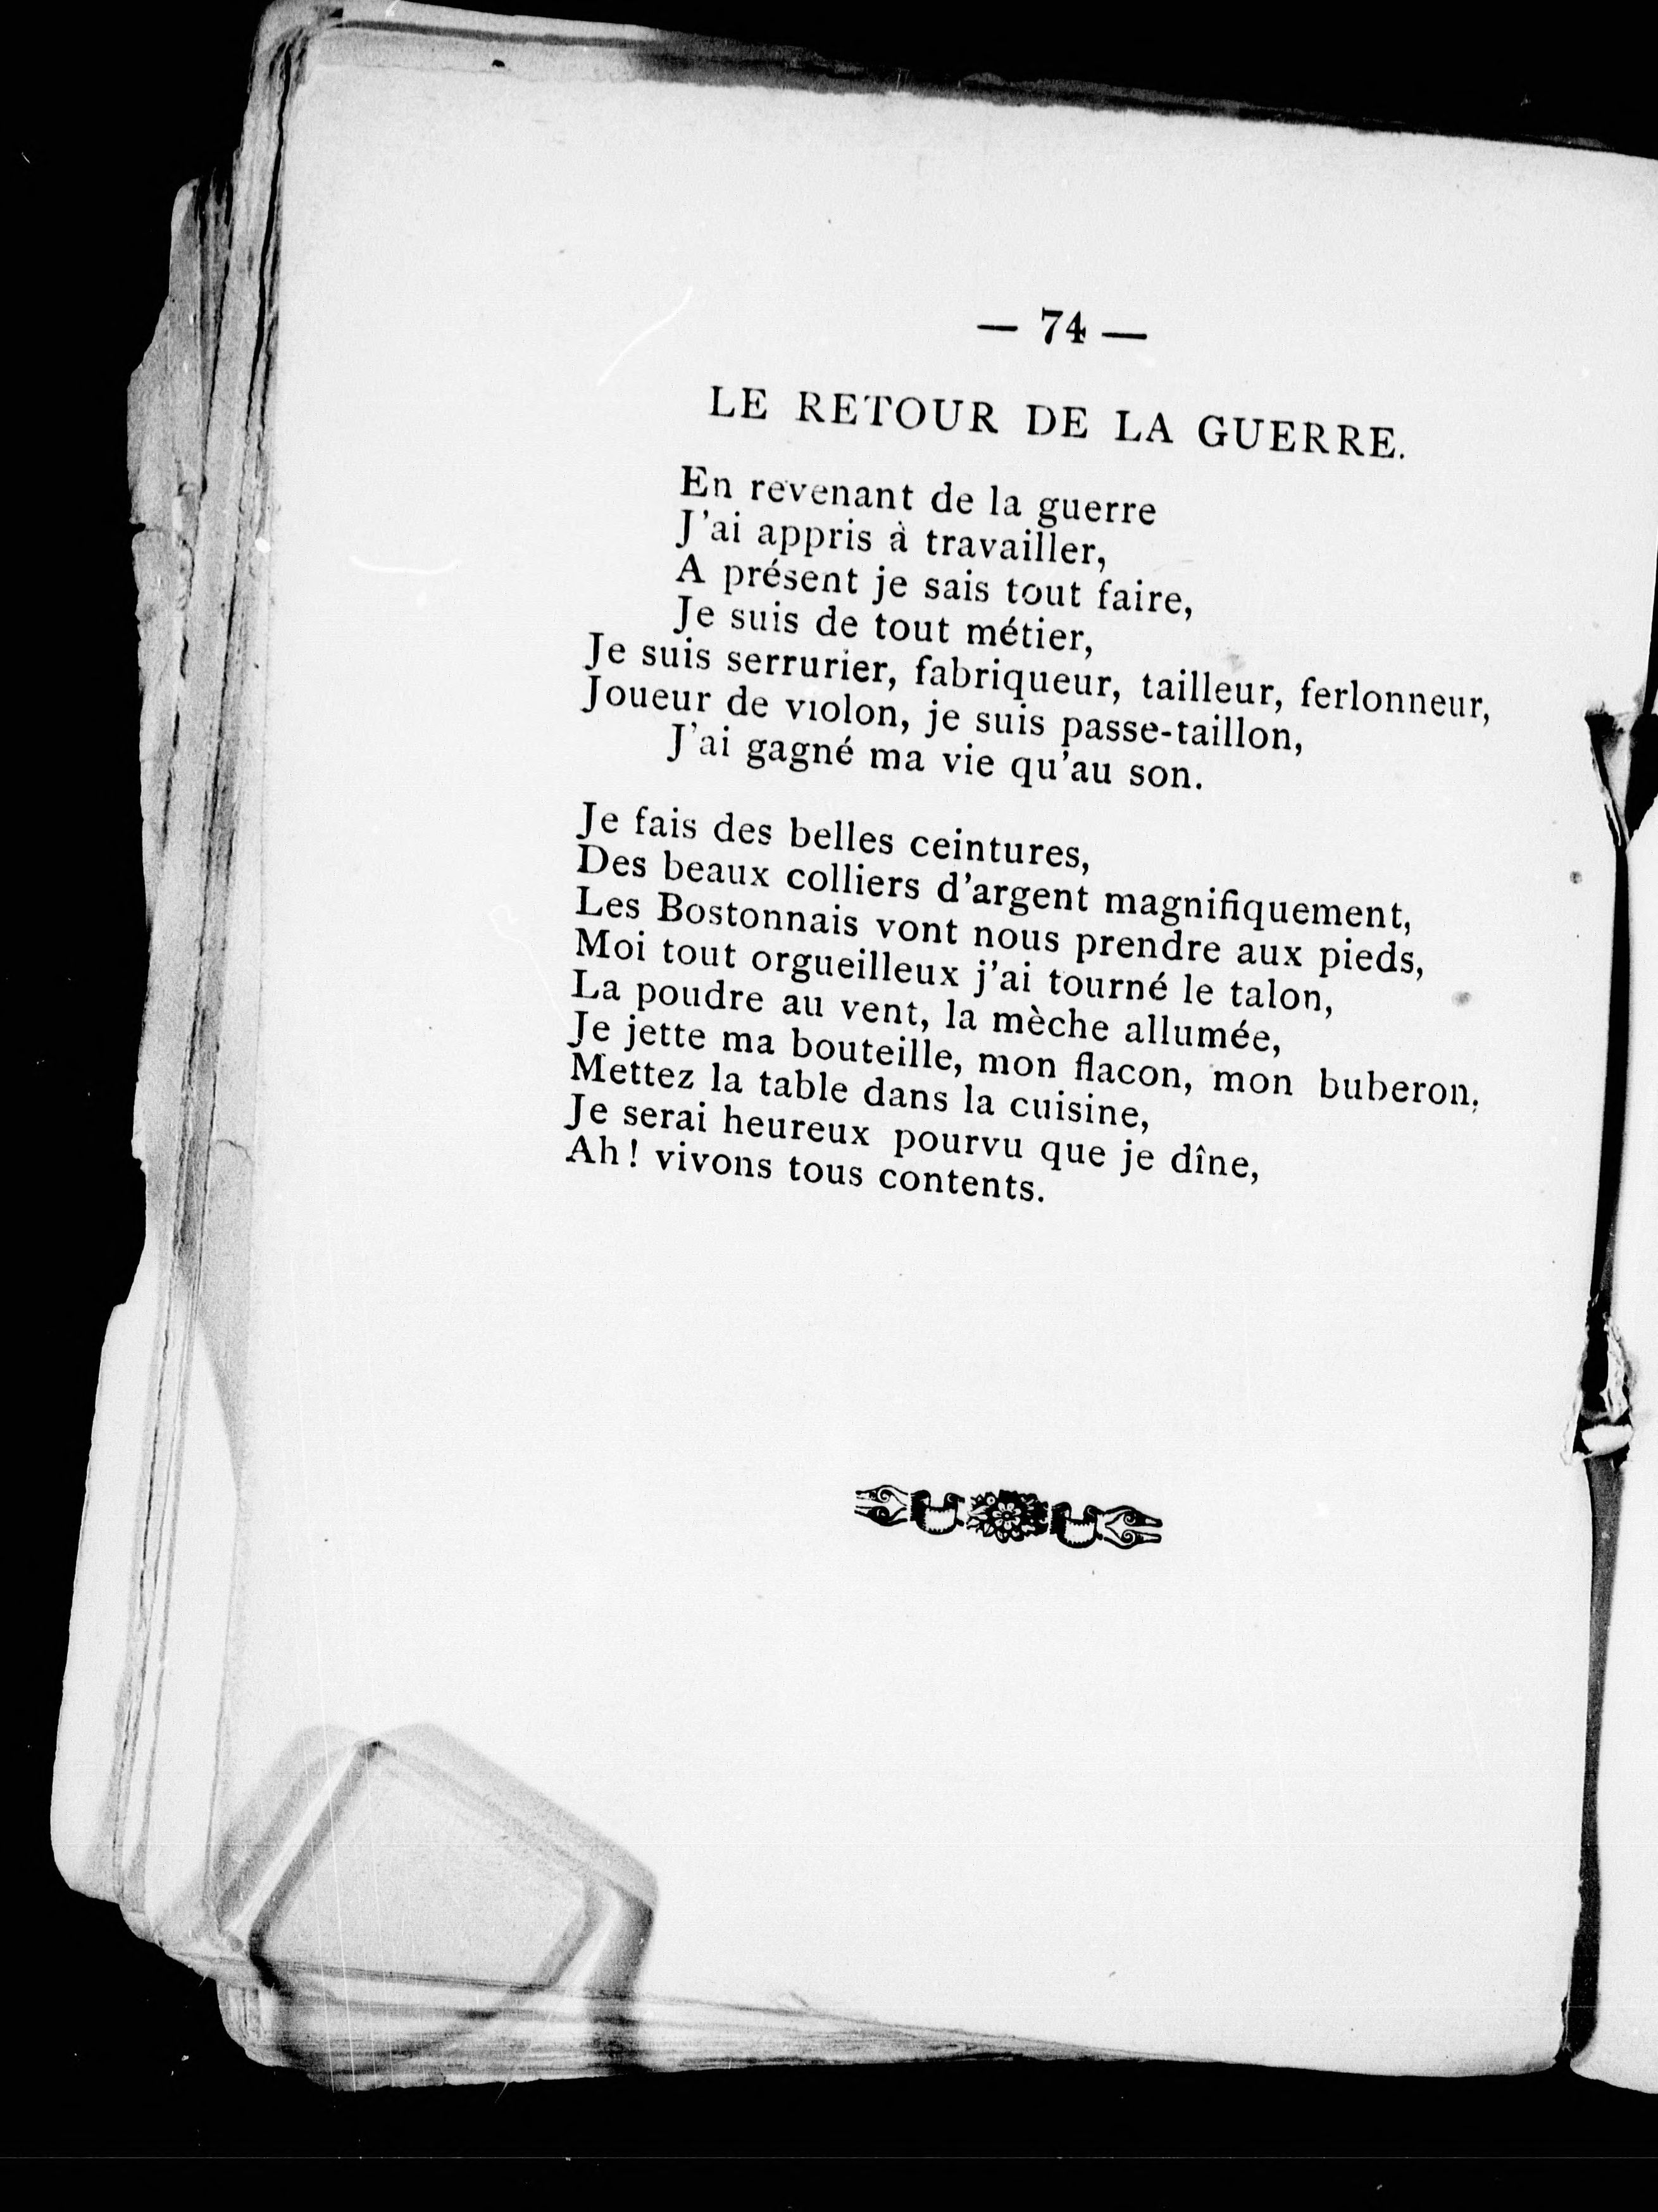 — 74 —
LE RETOUR DE LA GUERRE.
En revenant de la guerre
J'ai appris à travailler,
A présent je sais tout faire,
Je suis de tout métier,
Je suis serrurier, fabriqueur, tailleur, ferlonneur,
Joueur de violon, je suis passe-taillon,
J'ai gagné ma vie qu'au son.
Je fais des belles ceintures,
Des beaux colliers d'argent magnifiquement,
Les Bostonnais vont nous prendre aux pieds,
Moi tout orgueilleux j'ai tourné le talon,
La poudre au vent, la mèche allumée,
Je jette ma bouteille, mon flacon, mon buberon.
Mettez la table dans la cuisine,
Je serai heureux pourvu que je dîne,
Ah! vivons tous contents.